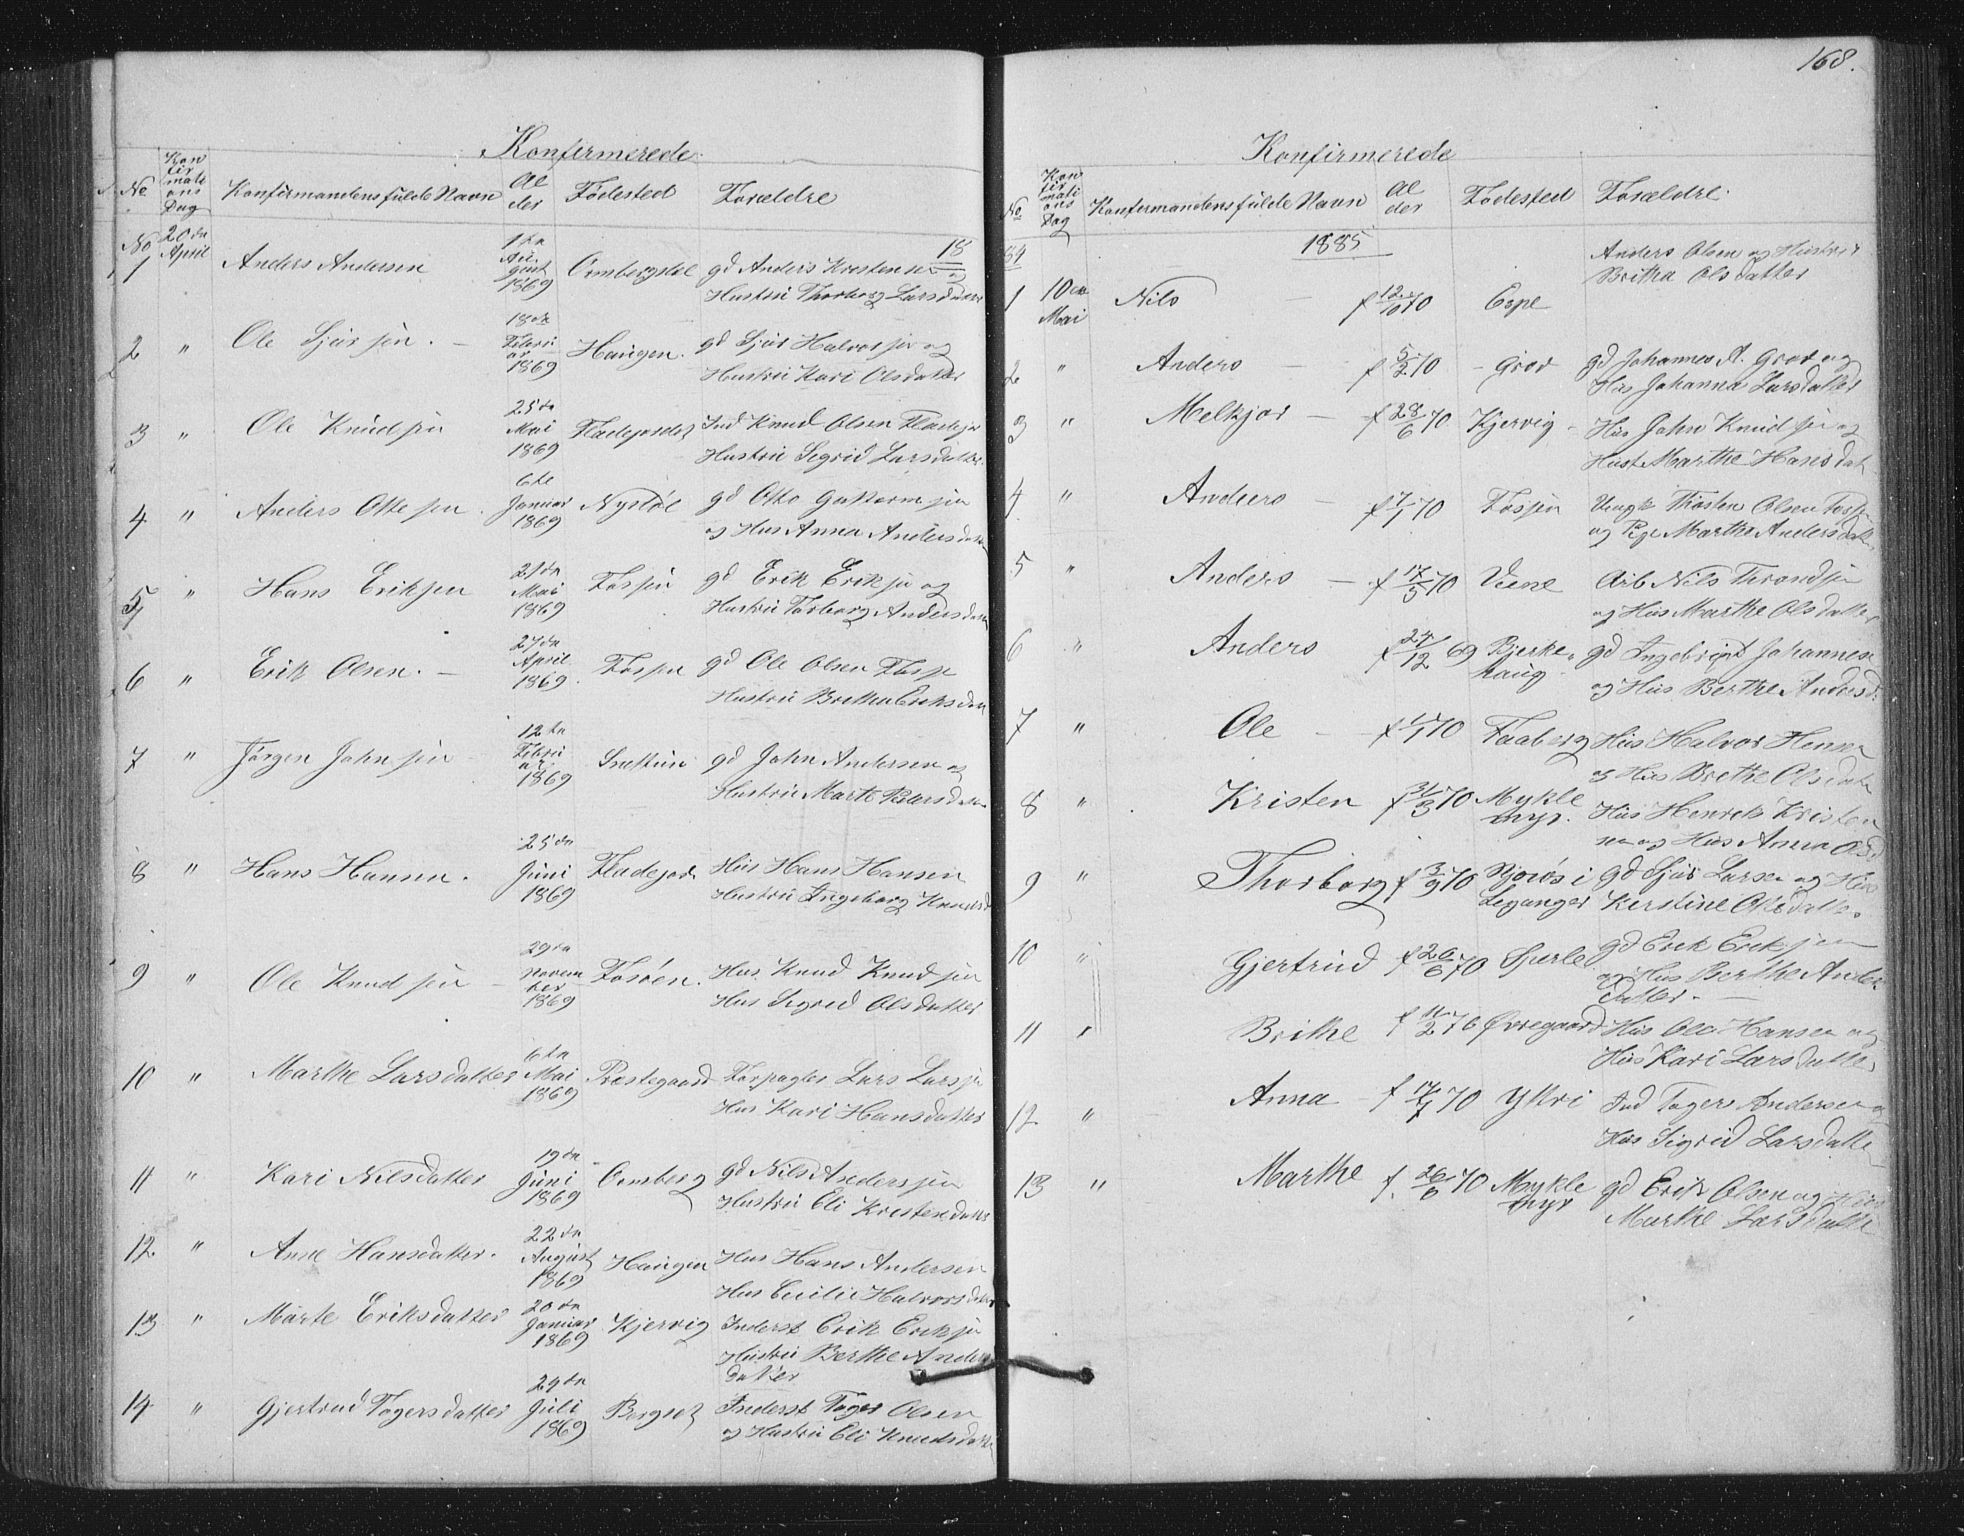 168.
Konfirmerede
No Konfirmations Dag Konfirmandens fulde Navn Alder Fødested Forældre
No 20de April
1 Anders Andersen 1ste August 1869 Ormbergstøl gd Anders Krestensen og 18
Hustru Thorborg Larsdatter
2 " Ole Sjursen 18de Februar 1869 Haugen gd Sjur Halvorsen og
Hustru Kari Olsdatter
3 " Ole Knudsen 25de Mai 1869 Fladejordet Ind Knud Olsen
Hustru Sigrid Larsdatter
4 " Anders Ottesen 6te Januar 1869 Nystøl gd Otto Guttormsen
og Hus Anna Andersdatter
5 " Hans Eriksen 27de Mai 1869 Fossen gd Erik Eriksen og
Hustru Torborg Andersdatter
6 " Erik Olsen 27de April 1869 Fossen gd Ole Olsen
Hustru Brithe Eriksdatter
7 " Jørgen John sen 12te Februar 1869 Snetun gd John Andersen og
Hustru Marte Pedersdatter
8 " Hans Hansen 25de Juni 1869 Fladejord Hus Hans Hansen
Hustru Ingeborg Knudsd
9 " Ole Knudsen 29de November 1869 Fosøen Hus Knud Knudsen
Hus Sigrid Olsdatter
10 " Marthe Larsdatter 6te Mai 1869 Præstegaard Forpagter Lars Larsen
Hus Kari Hansdatter
11 " Kari Nilsdatter 19de Juni 1869 Ormberg gd Nils Andersen
Hustru Eli Kristensdatter
12 " Ane Hansdatter 22de August 1869 Haugen Hus Hans Andersen
Hus Cecilie Halvorsdatter
13 " Marte Eriksdatter 20de Januar 1869 Kjervig Inderst Erik Eriksen
Hustru Berthe Anders
datter
14 " Gjertrud Togersdatter 29de Juli 1869 Bergset Inderst Toger Olsen
og Hustru Eli Knudsdatter
Konfirmerede
No Konfirmations Dag Konfirmandens fulde Navn Alder Fødested Forældre
1885
1 10de Mai Nils f 12/10 70 Espe Anders Olsen og Hustru
Britha Olsdatter
2 " Anders f 5/2 70 Grov gd Johannes A. Grov og
Hus Johanna Larsdatter
3 " Melkjor f 28/6 70 Kjervig Hus John Knudsen og
Hust Marthe Hansdat
4 " Anders f 7/1 70 Fossen Ungk Thosten Olsen
og Pige Marthe Andersdat
5 " Anders f 17/5 70 Vene Arb Nils Throndsen
og Hus Marthe Olsdatter
6 " Anders f 24/12 69 Bjerkehaug gd Ingebrigt Johannesen
og Hus Berthe Andersd
7 " Ole f 1/1 70 Faaberg Hus Halvor Hensen
og Hus Brethe Olsdat
8 " Kristen f 31/3 70 Myklemyr. Hus Henrik Kristen
sen og Hus Anna Olsd
9 " Thorborg f 3/9 70 Njøøs i Leganger gd Sjur Larsen og Hus
Kerstine Olsdatter
10 " Gjertrud f 26/6 70 Sperle gd Erik Eriksen
og Hus Berthe Anders
datter
11 " Brithe f 11/2 70 Øvregaard Hus Ole Hansen og
Hus Kari Larsdatter
12 " Anna f 17/7 70 Yttri Ind Toger Andersen og
Hus Sigrid Larsdatte
13 " Marthe f. 26/6 70 Myklemyr gd Erik Olsen og Hus
Marthe Larsdatte